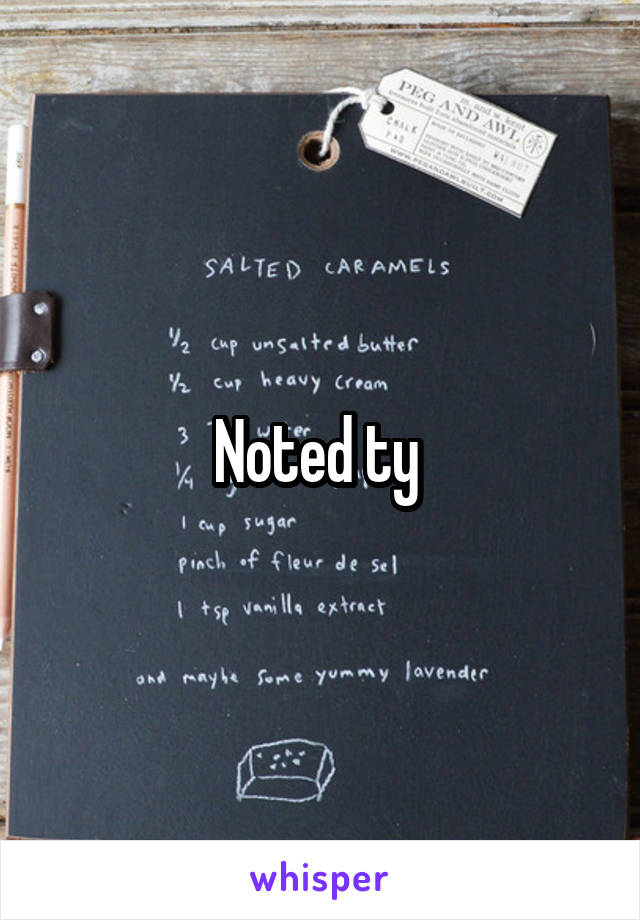 m. and w. kent
PEG AND AWL
CHALK
PAD
WALNUT
WWW.PEGANDAWLBUILT.COM
SALTED CARAMELS
1/2 cup unsalted butter
1/2 cup heavy cream
3 water
Noted ty
1/4
1 cup sugar
pinch of fleur de sel
1 tsp vanilla extract
and maybe some yummy lavender
whisper